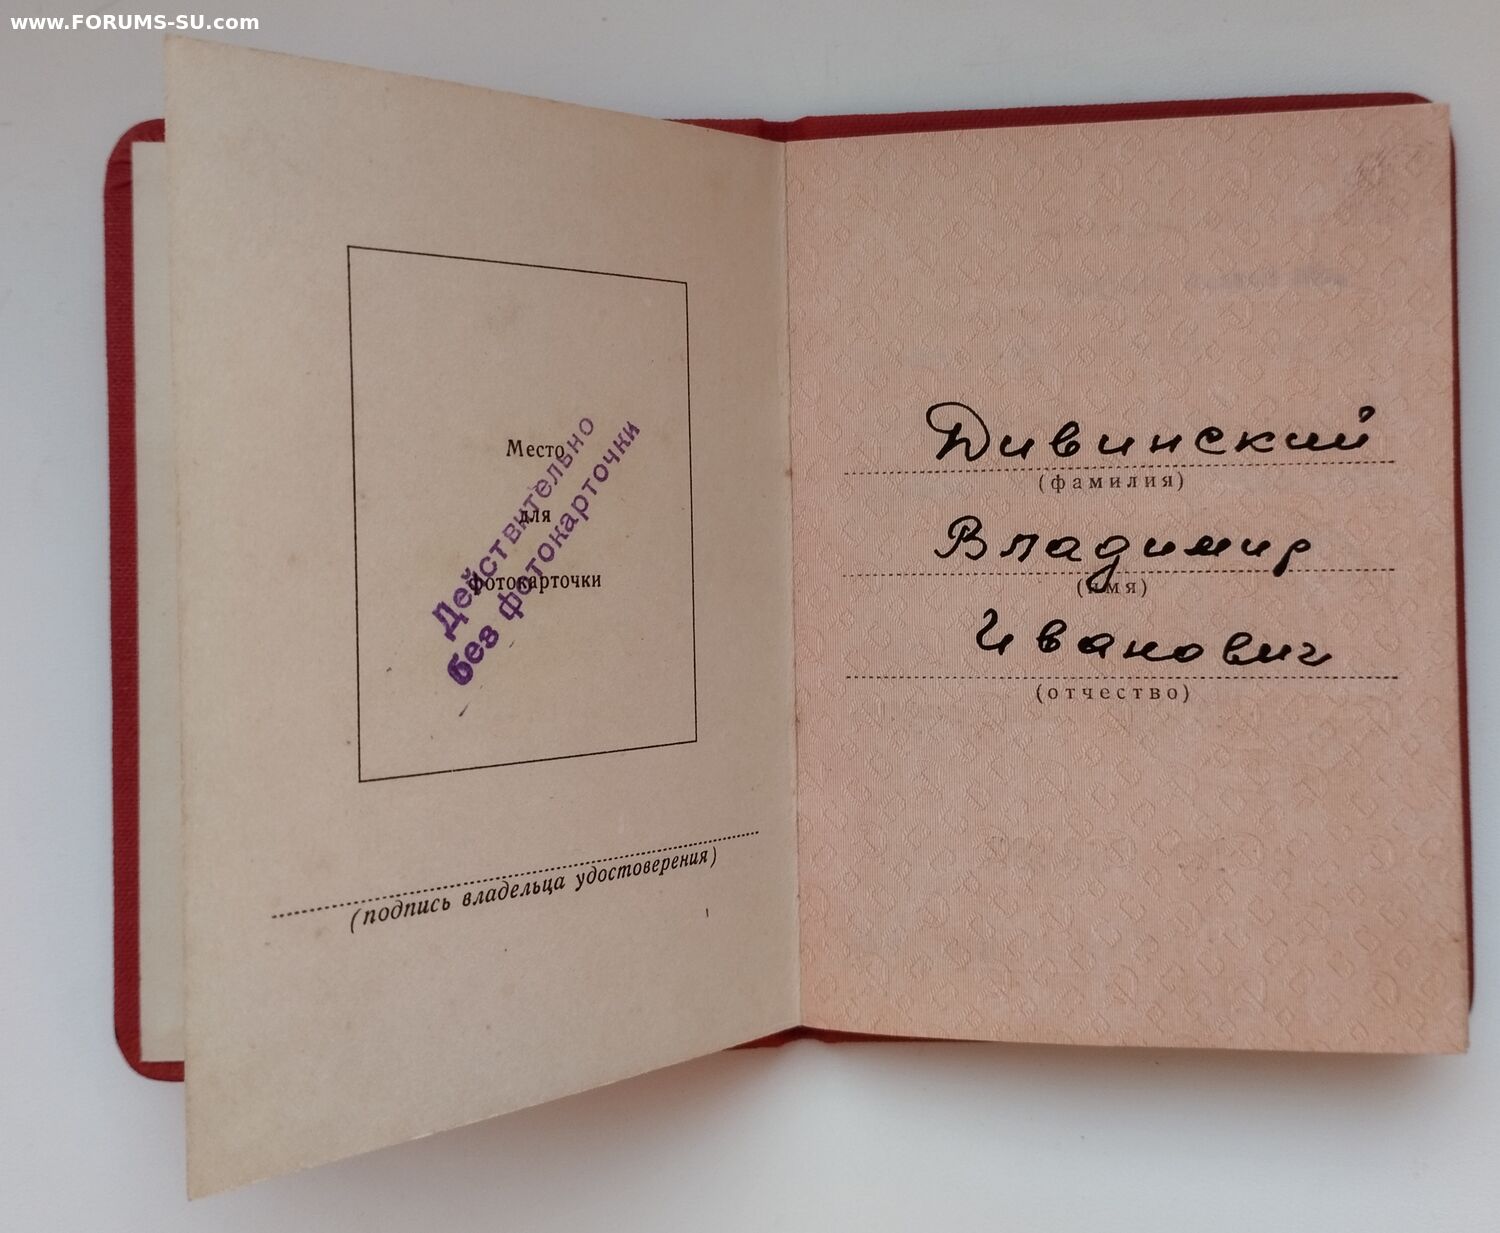 www.FORUMS-SU.com
Место
для
фотокарточки
Действительно
без фотокарточки
(подпись владельца удостоверения)
Дивинский
(фамилия)
Владимир
(имя)
Иванович
(отчество)